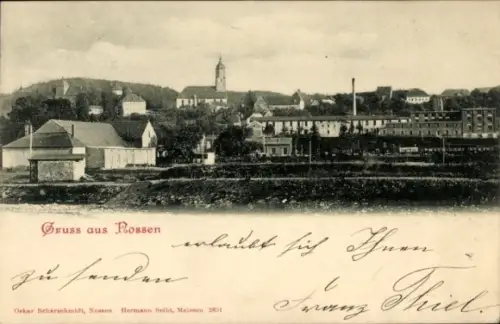 Gruss aus Nossen erlaubt sich Ihnen
zu senden
Franz Thiel.
Oskar Scharschmidt, Nossen. Hermann Seibt, Meissen